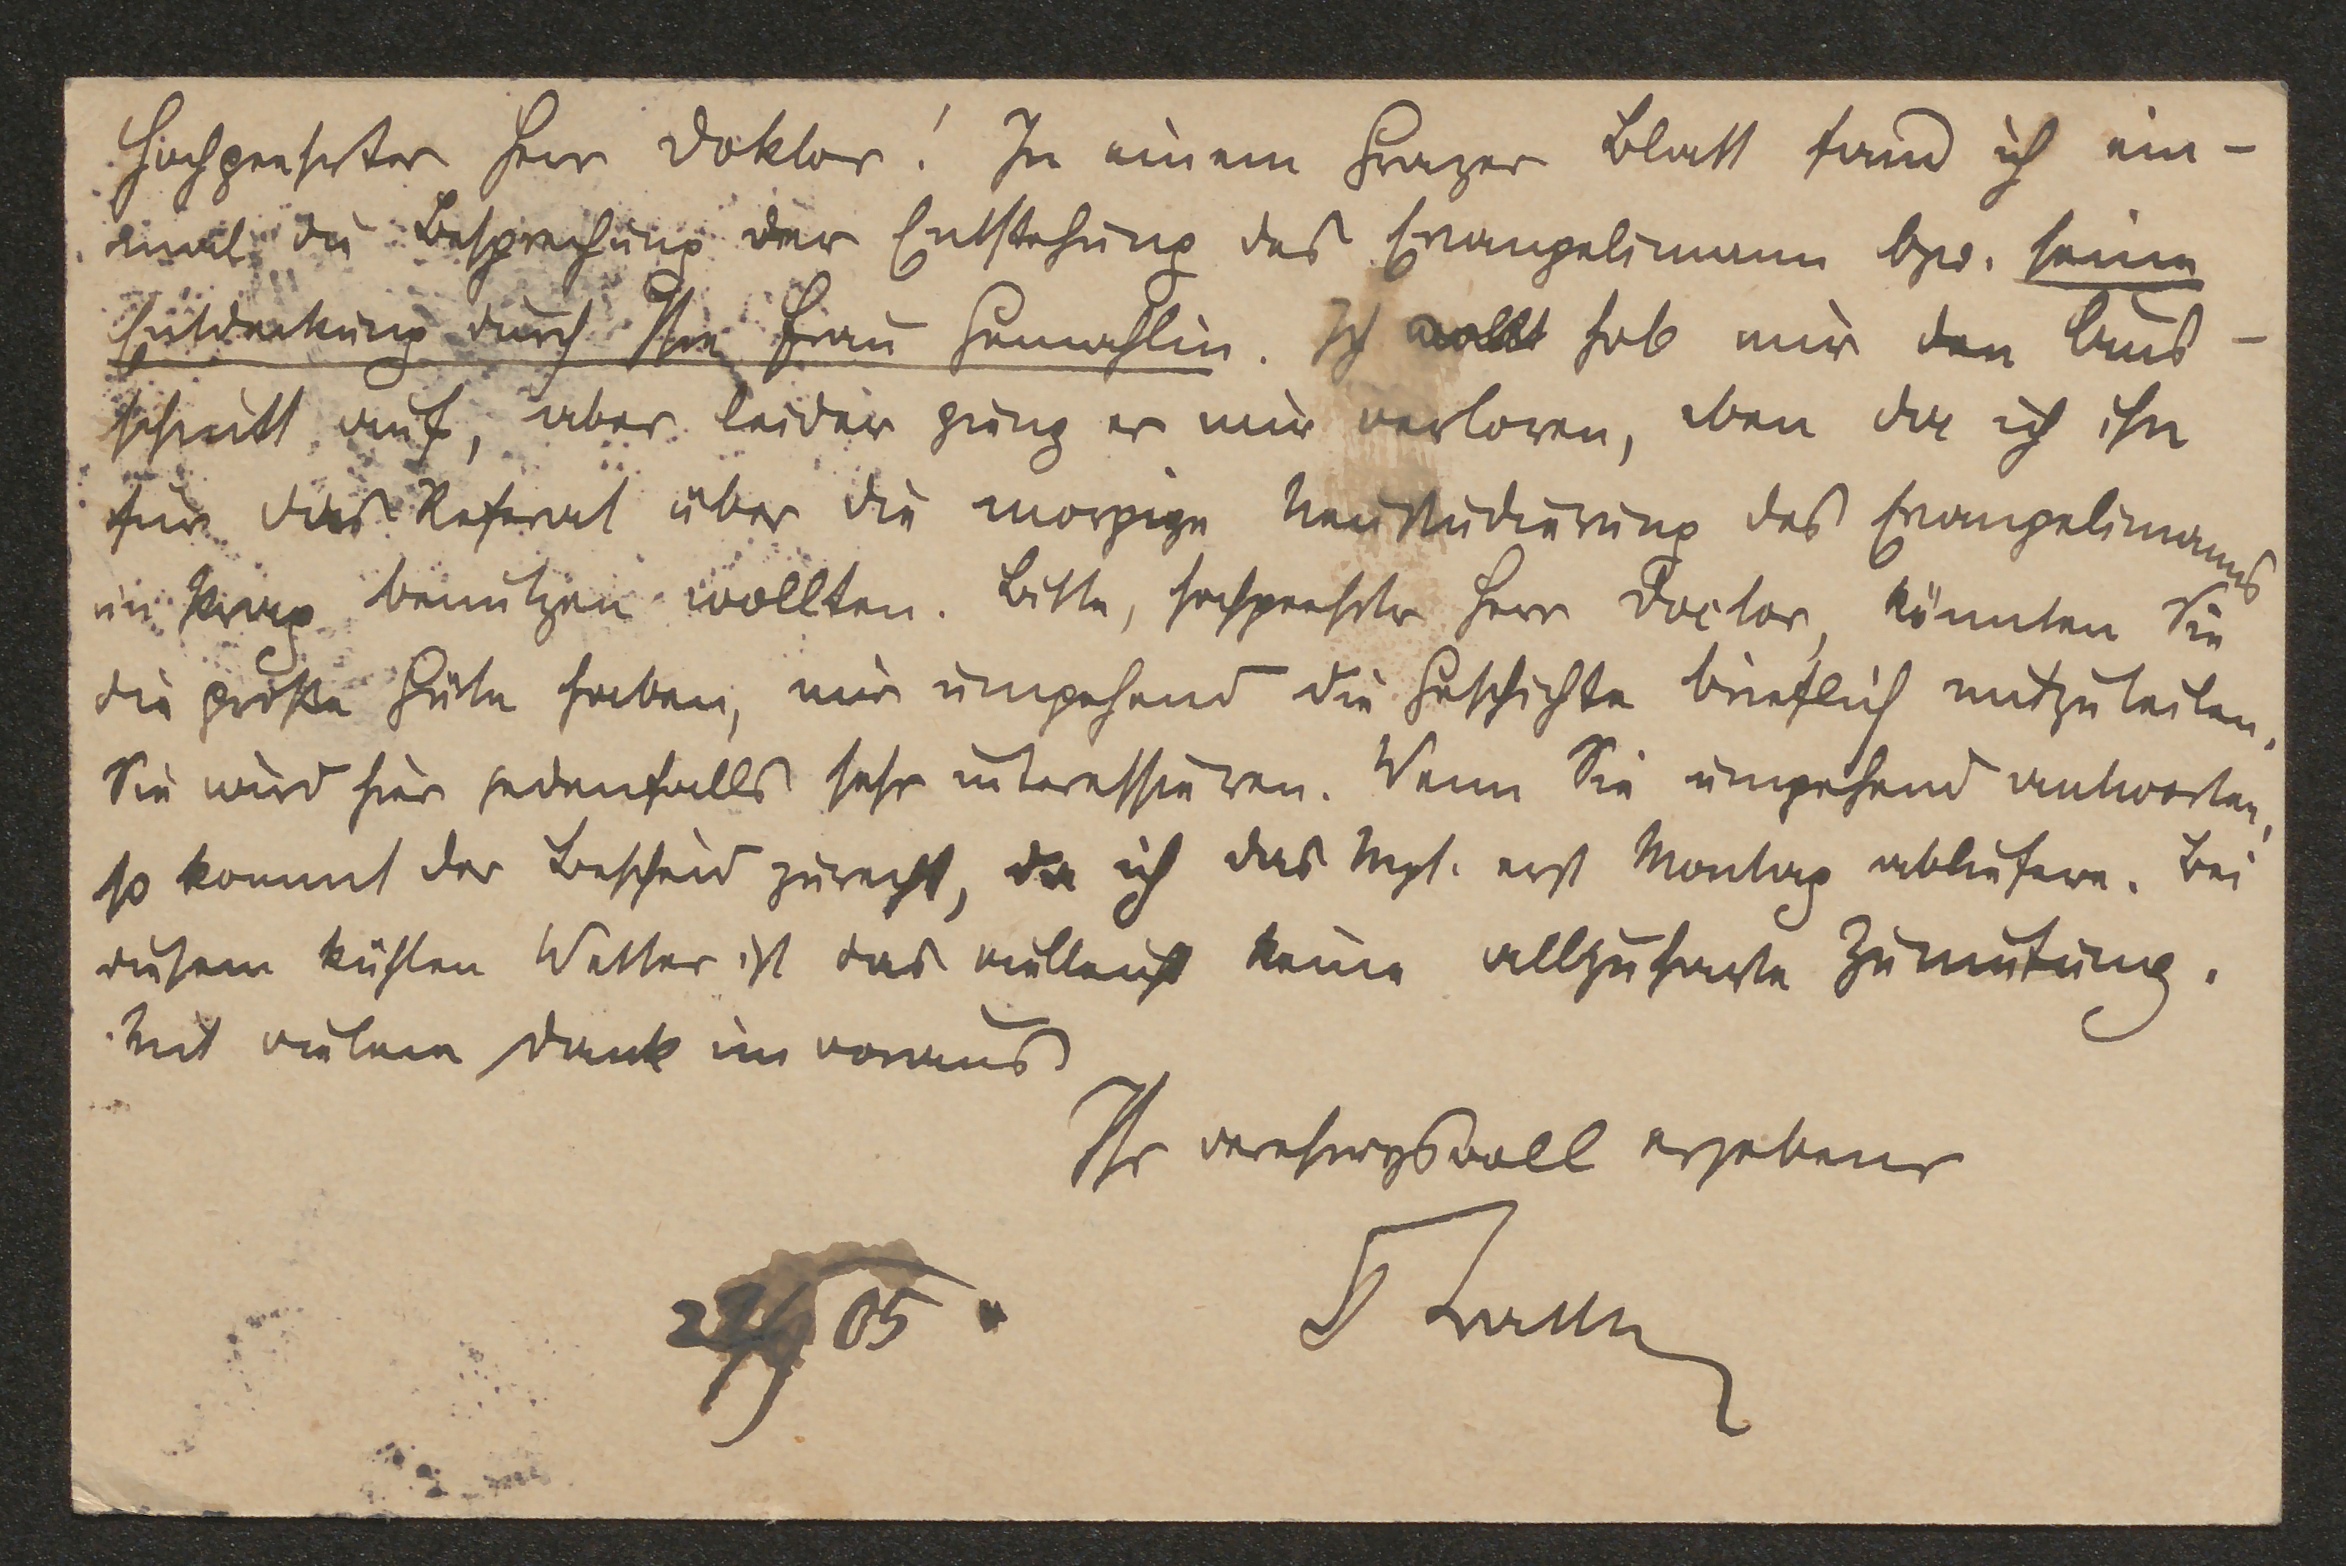 Hochgeehrter Herr Doktor! In einem Grazer Blatt fand ich ein-
mal die Besprechung der Entstehung des Evangelimann bzw. seine
Entdeckung durch Ihre Frau Gemahlin. Ich hob mir den Aus-
schnitt auf, aber leider ging er mir verloren, eben da ich ihn
für das Referat über die morgige Neustudierung des Evangelimanns
in Prag benutzen wollten. Bitte, hochgeehrter Herr Doctor, könnten Sie
die große Güte haben, mir umgehend die Geschichte brieflich mitzuteilen.
Sie wird hier jedenfalls sehr interessieren. Wenn Sie umgehend antworten,
so kommt der Bescheid zurecht, da ich das Mpt. erst Montag abliefere. Bei
diesem kühlen Wetter ist das vielleicht keine allzuharte Zumutung.
Mit vielem Dank im voraus
Ihr verehrungsvoll ergebener
05